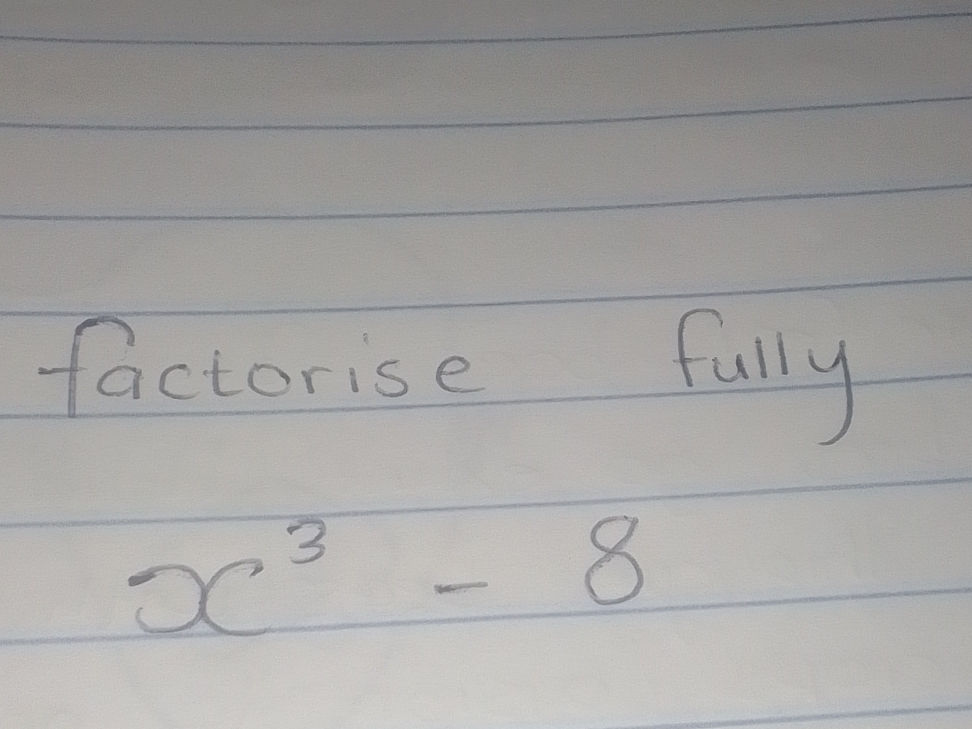 factorise fully
x³ - 8